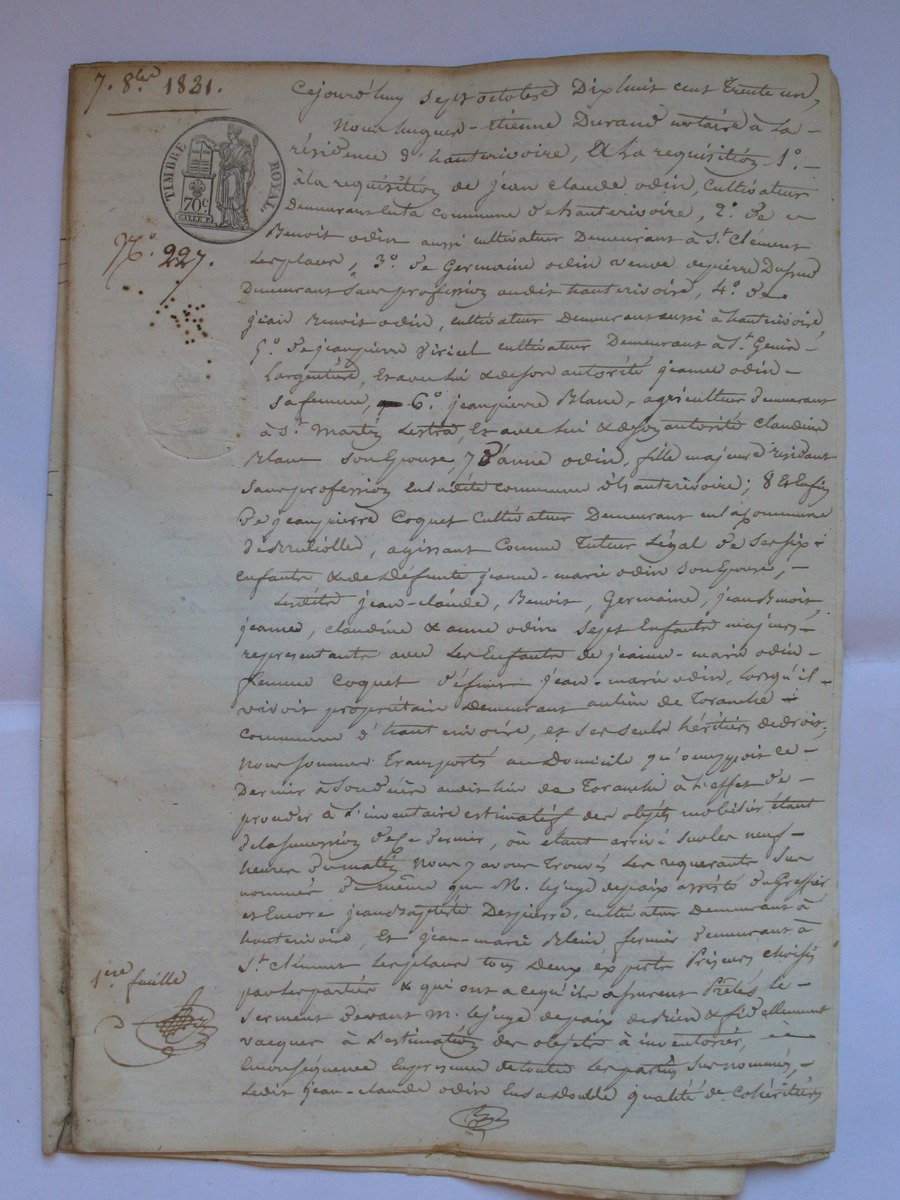 7. 8bre 1831.
TIMBRE ROYAL
70c
N° 227.
Cejourd'huy sept octobre Dix huit cent Trente un,
Nous hugues-Etienne Durand notaire à La
résidence d'hauterivoire, A La requisition 1°.
à la requisition de jean claude odin, Cultivateur
Demeurant en la Commune d'hauterivoire, 2°. de
Benoit odin aussi cultivateur Demeurant à St Clément
Les places, 3°. de Germaine odin veuve de pierre
Demeurant Sans profession audit hauterivoire, 4°. de
jean Benoit odin, cultivateur Demeurant aussi à hauterivoire,
5°. de jean pierre viricel cultivateur Demeurant à St Genis
Largentière, Et avec lui & de son autorité jeanne odin
sa femme, 6°. jean pierre Blanc, agriculteur demeurant
à St Martin Lestra, Et avec lui & de son autorité Claudine
Blanc son Epouse, 7° anne odin, fille majeure résidant
Sans profession en ladite commune d'hauterivoire; 8 Et Enfin
De jean pierre Coquet Cultivateur Demeurant en la commune
de Brulliolle, agissant Comme Tuteur Légal de ses six
enfants & de Défunte jeanne-marie odin son Epouse,
Lesdits jean-claude, Benoit, Germaine, jean Benoit,
jeanne, claudine & anne odin sept Enfants majeurs
représentants avec Les Enfants de jeanne-marie odin
femme Coquet Défunt jean-marie odin, Lorsqu'il
vivoit propriétaire Demeurant au lieu de Toranche
Commune d'hauterivoire, et ses seuls héritiers de droit,
Nous sommes Transportés au Domicile qu'occupoit ce
Dernier à Son Décès audit lieu de Toranche à L'effet de
procéder à L'inventaire estimatif des objets mobiliers étant
de la succession de ce dernier, où étant arrivé sur les neuf
heures du matin Nous y avons Trouvés Les requérants sus
nommés de même que M. le juge de paix assisté du Greffier
et Encore jean Baptiste Despierre, cultivateur Demeurant à
hauterivoire, Et jean-marie Blein fermier demeurant à
St Clément Les places tous Deux experts Priseurs choisis
par Les parties & qui ont à ce qu'ils assurent Prêtés le
serment devant M. le juge de paix de bien & fidellement
vacquer à L'estimation des objets à inventorier,
En conséquence En présence de toutes Les parties sus nommées,
Ledit jean-claude odin En sa double qualité de Cohéritiers
1ère feuille